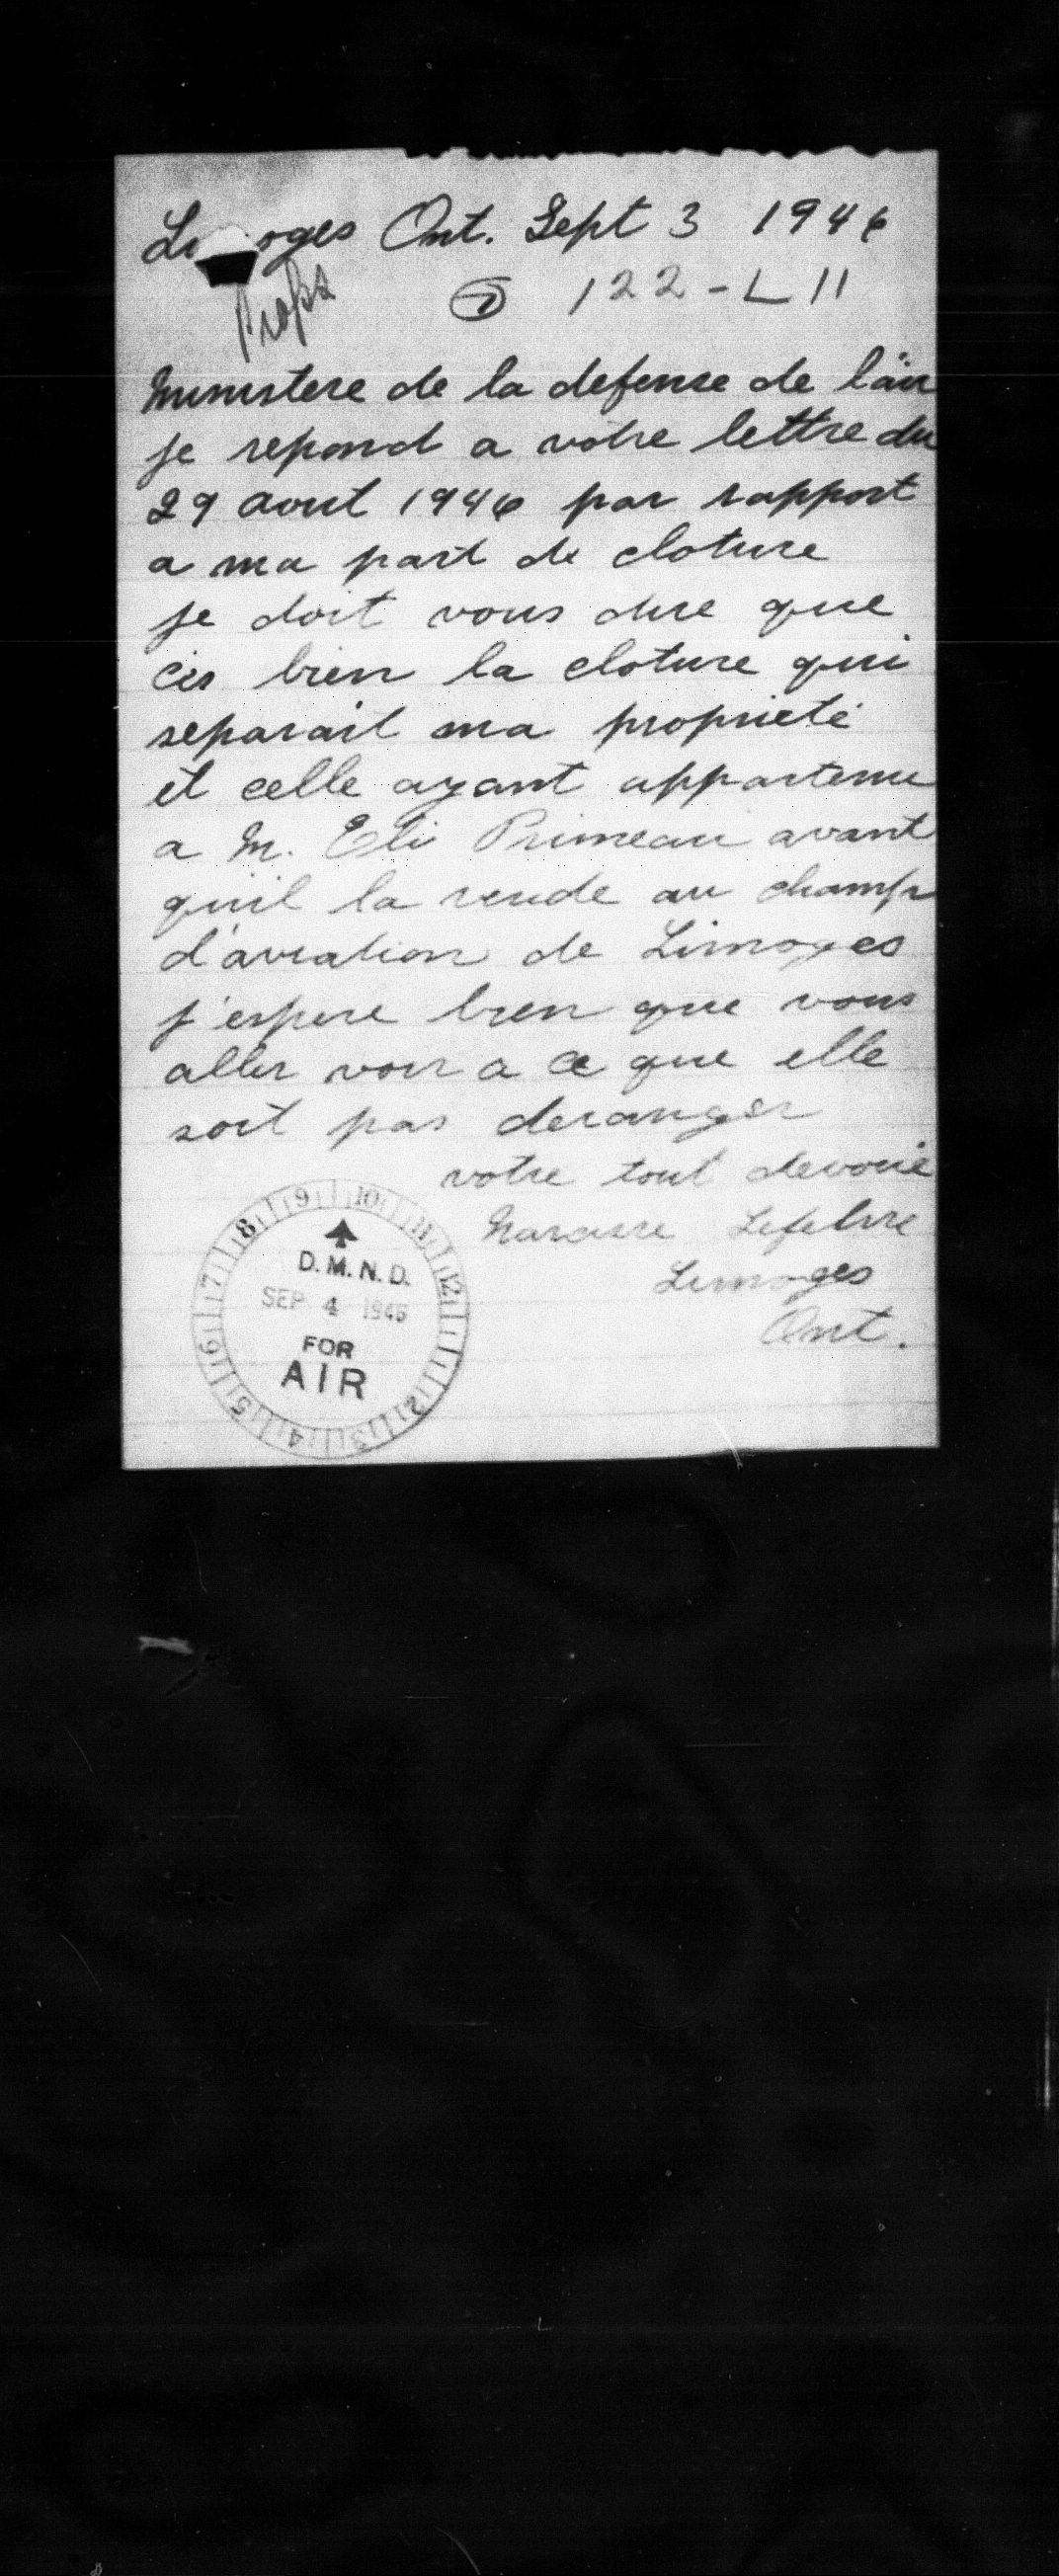 Limoges Ont. Sept 3 1946
Props
122-L11
Ministere de la defense de l'air
je repond a votre lettre du
29 aout 1946 par rapport
a ma part de cloture
je doit vous dire que
ces bien la cloture qui
separait ma propriété
et celle ayant appartenu
a M. Eli Primeau avant
qu'il la vende au champ
d'aviation de Limoges
j'espere bien que vous
aller voir a ce que elle
soit pas deranger
votre tout devoué
Narcisse Lefebvre
Limoges
Ont.
D.M.N.D.
SEP 4 1946
FOR
AIR
2 3 4 5 6 7 8 9 10 11 12